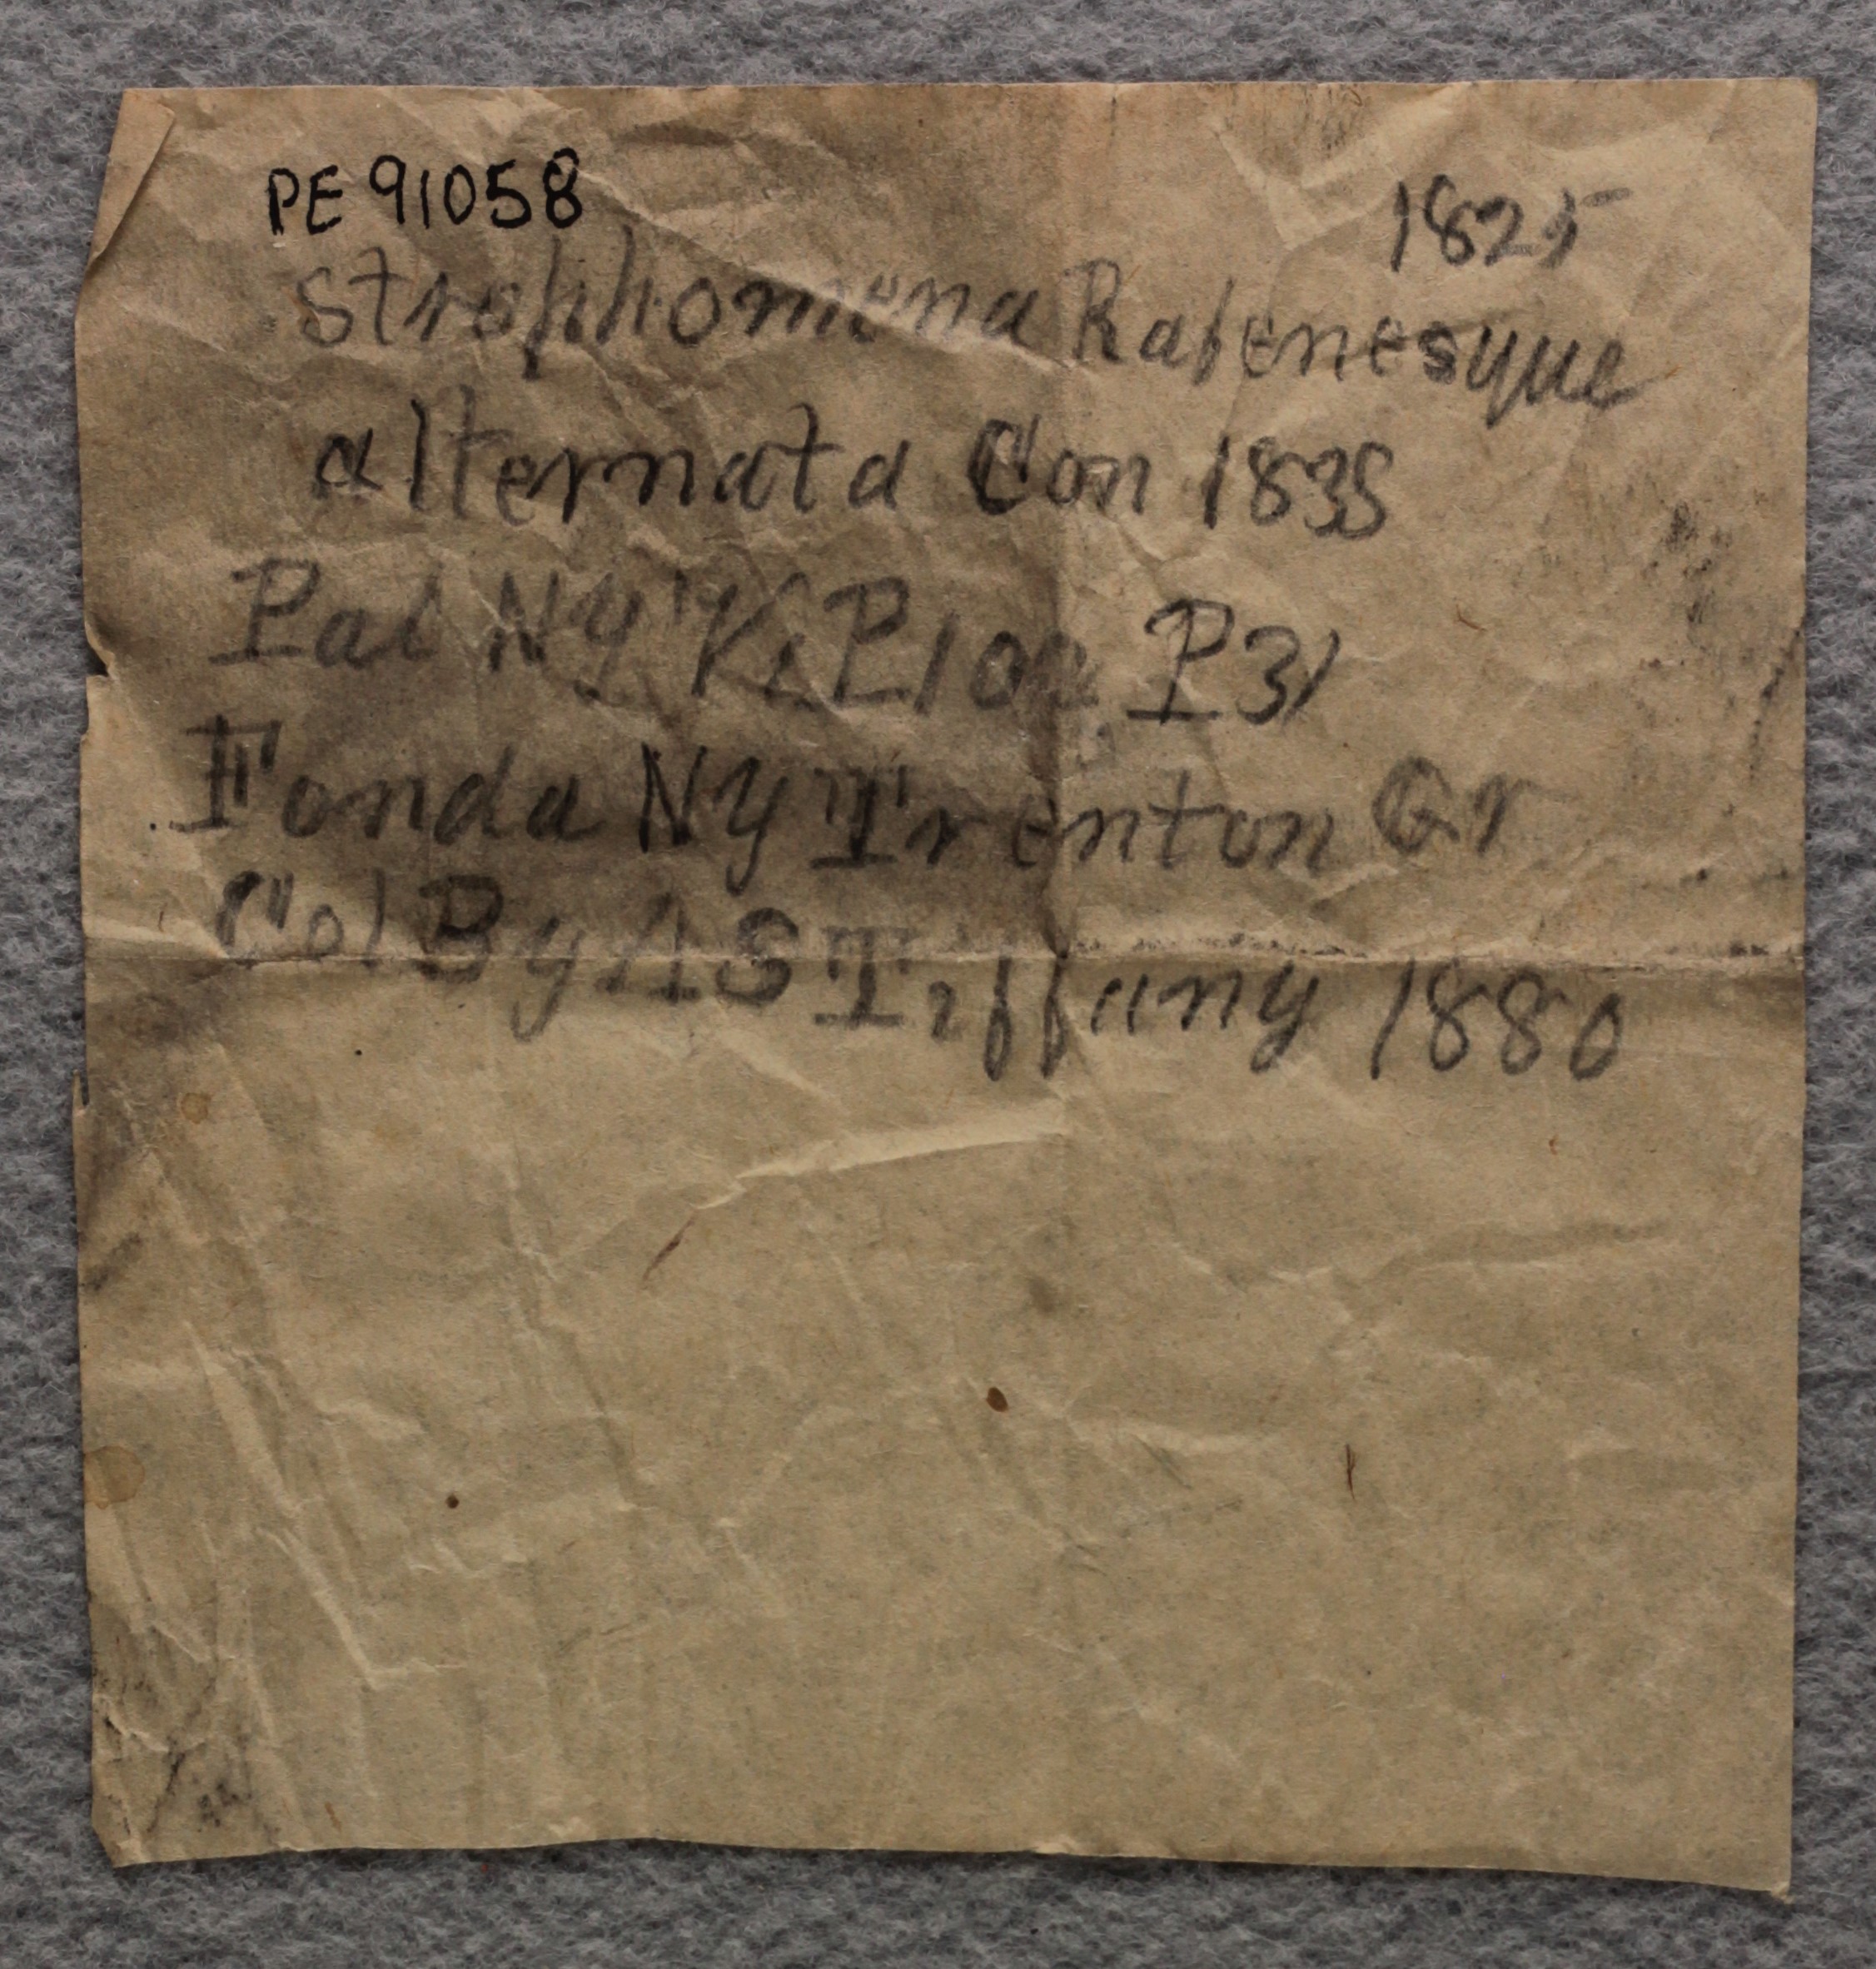 PE 91058
1825
Strophomena Rafenesque
alternata Con 1838
Pal NY V1 P102 P31
Fonda NY Trenton Gr
Col By A S Tiffany 1880